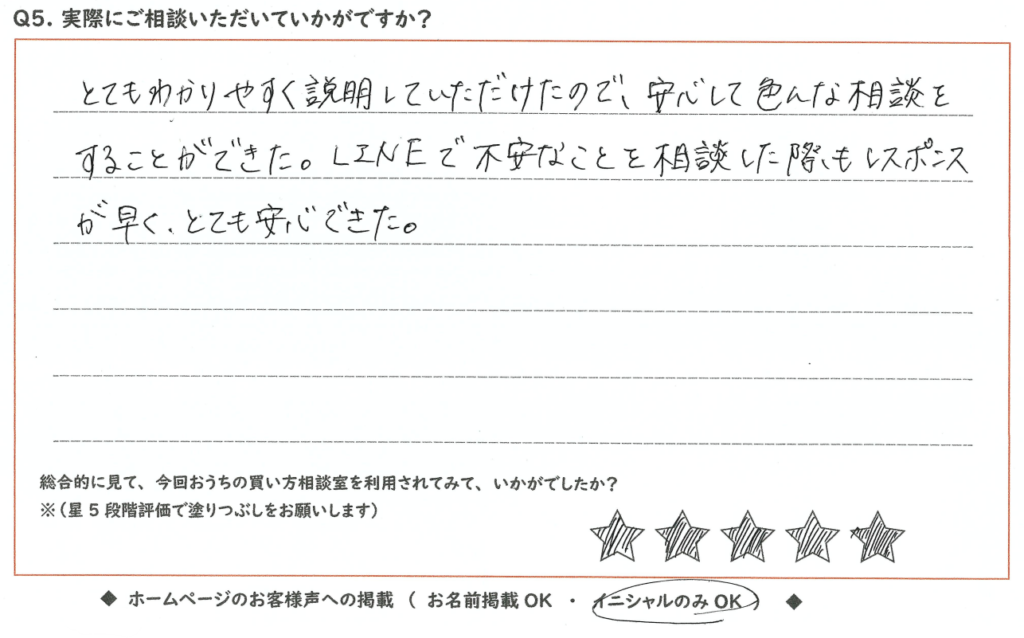 Q5. 実際にご相談いただいていかがですか？
とてもわかりやすく説明していただけたので、安心して色んな相談を
することができた。LINEで不安なことを相談した際もレスポンス
が早く、とても安心できた。
総合的に見て、今回おうちの買い方相談室を利用されてみて、いかがでしたか？
※（星５段階評価で塗りつぶしをお願いします）
◆ ホームページのお客様声への掲載（ お名前掲載OK ・ イニシャルのみOK ） ◆